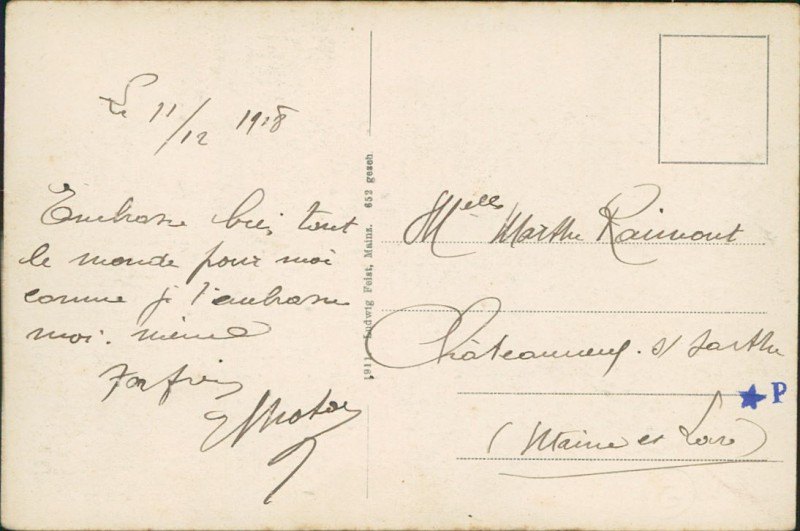 Le 11/12 1918
Embrasse bien tout
le monde pour moi
comme je t'embrasse
moi-même
Ton frère
1911 Ludwig Feist, Mainz. 652 gesch
Melle Marthe Raimont
Châteauneuf s/ Sarthe
P
(Maine et Loire)